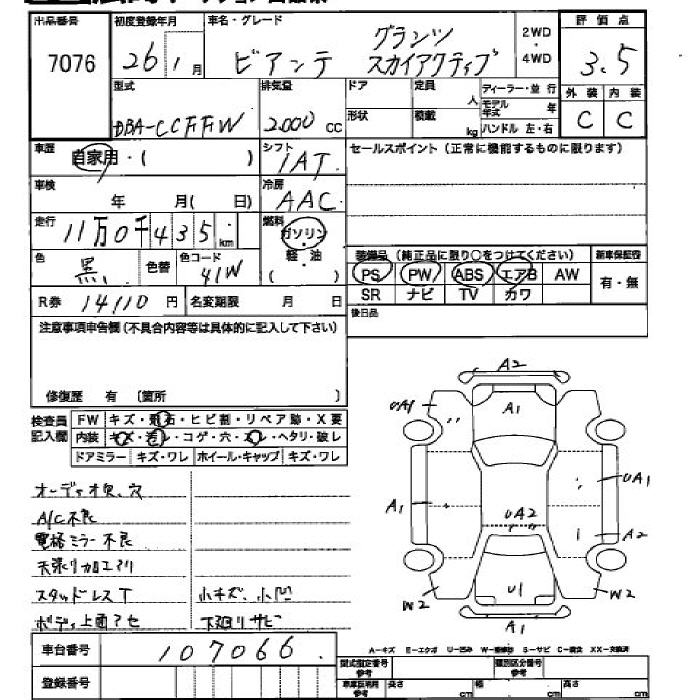 出品番号 初度登録年月 車名・グレード 評価点
7076 26年1月 ビアンテ グランツ スカイアクティブ 2WD・4WD 3.5
型式 排気量 ドア 定員 人 ディーラー・並行 外装 内装
DBA-CCFFW 2000 CC 形状 積載 kg モデル年式 年 ハンドル 左・右 C C
車歴 自家用・( ) シフト 1AT セールスポイント(正常に機能するものに限ります)
車検 年 月( ) 冷房 AAC
走行 11万0千435km 燃料 ガソリン・軽・油
色 黒 色替 色コード 41W 装備品(純正品に限り○をつけてください) 新車保証書
PS PW ABS エアB AW 有・無
SR ナビ TV カワ
R券 14110円 名変期限 月 日 後日品
注意事項申告欄(不具合内容等は具体的に記入して下さい)
修復歴 有 〔箇所 〕
検査員記入欄 FW キズ・飛石・ヒビ割・リペア跡・X要
内装 キズ・汚レ・コゲ・穴・スレ・ヘタリ・破レ
ドアミラー キズ・ワレ ホイール・キャップ キズ・ワレ
オーディオ欠、穴
A/C不良
電格ミラー不良
天張り加工アリ
スタッドレスT 小キズ、小凹
ボディ上面アセ 下廻りサビ
A2
UA1 A1
A1 UA1
UA2 A2
W2 U1 W2
A1
A-キズ E-エクボ U-凹み W-補修跡 S-サビ C-腐食 XX-交換済
車台番号 107066
型式指定番号 参考 類別区分番号 参考
登録番号 車庫証明用 参考 長さ cm 幅 cm 高さ cm